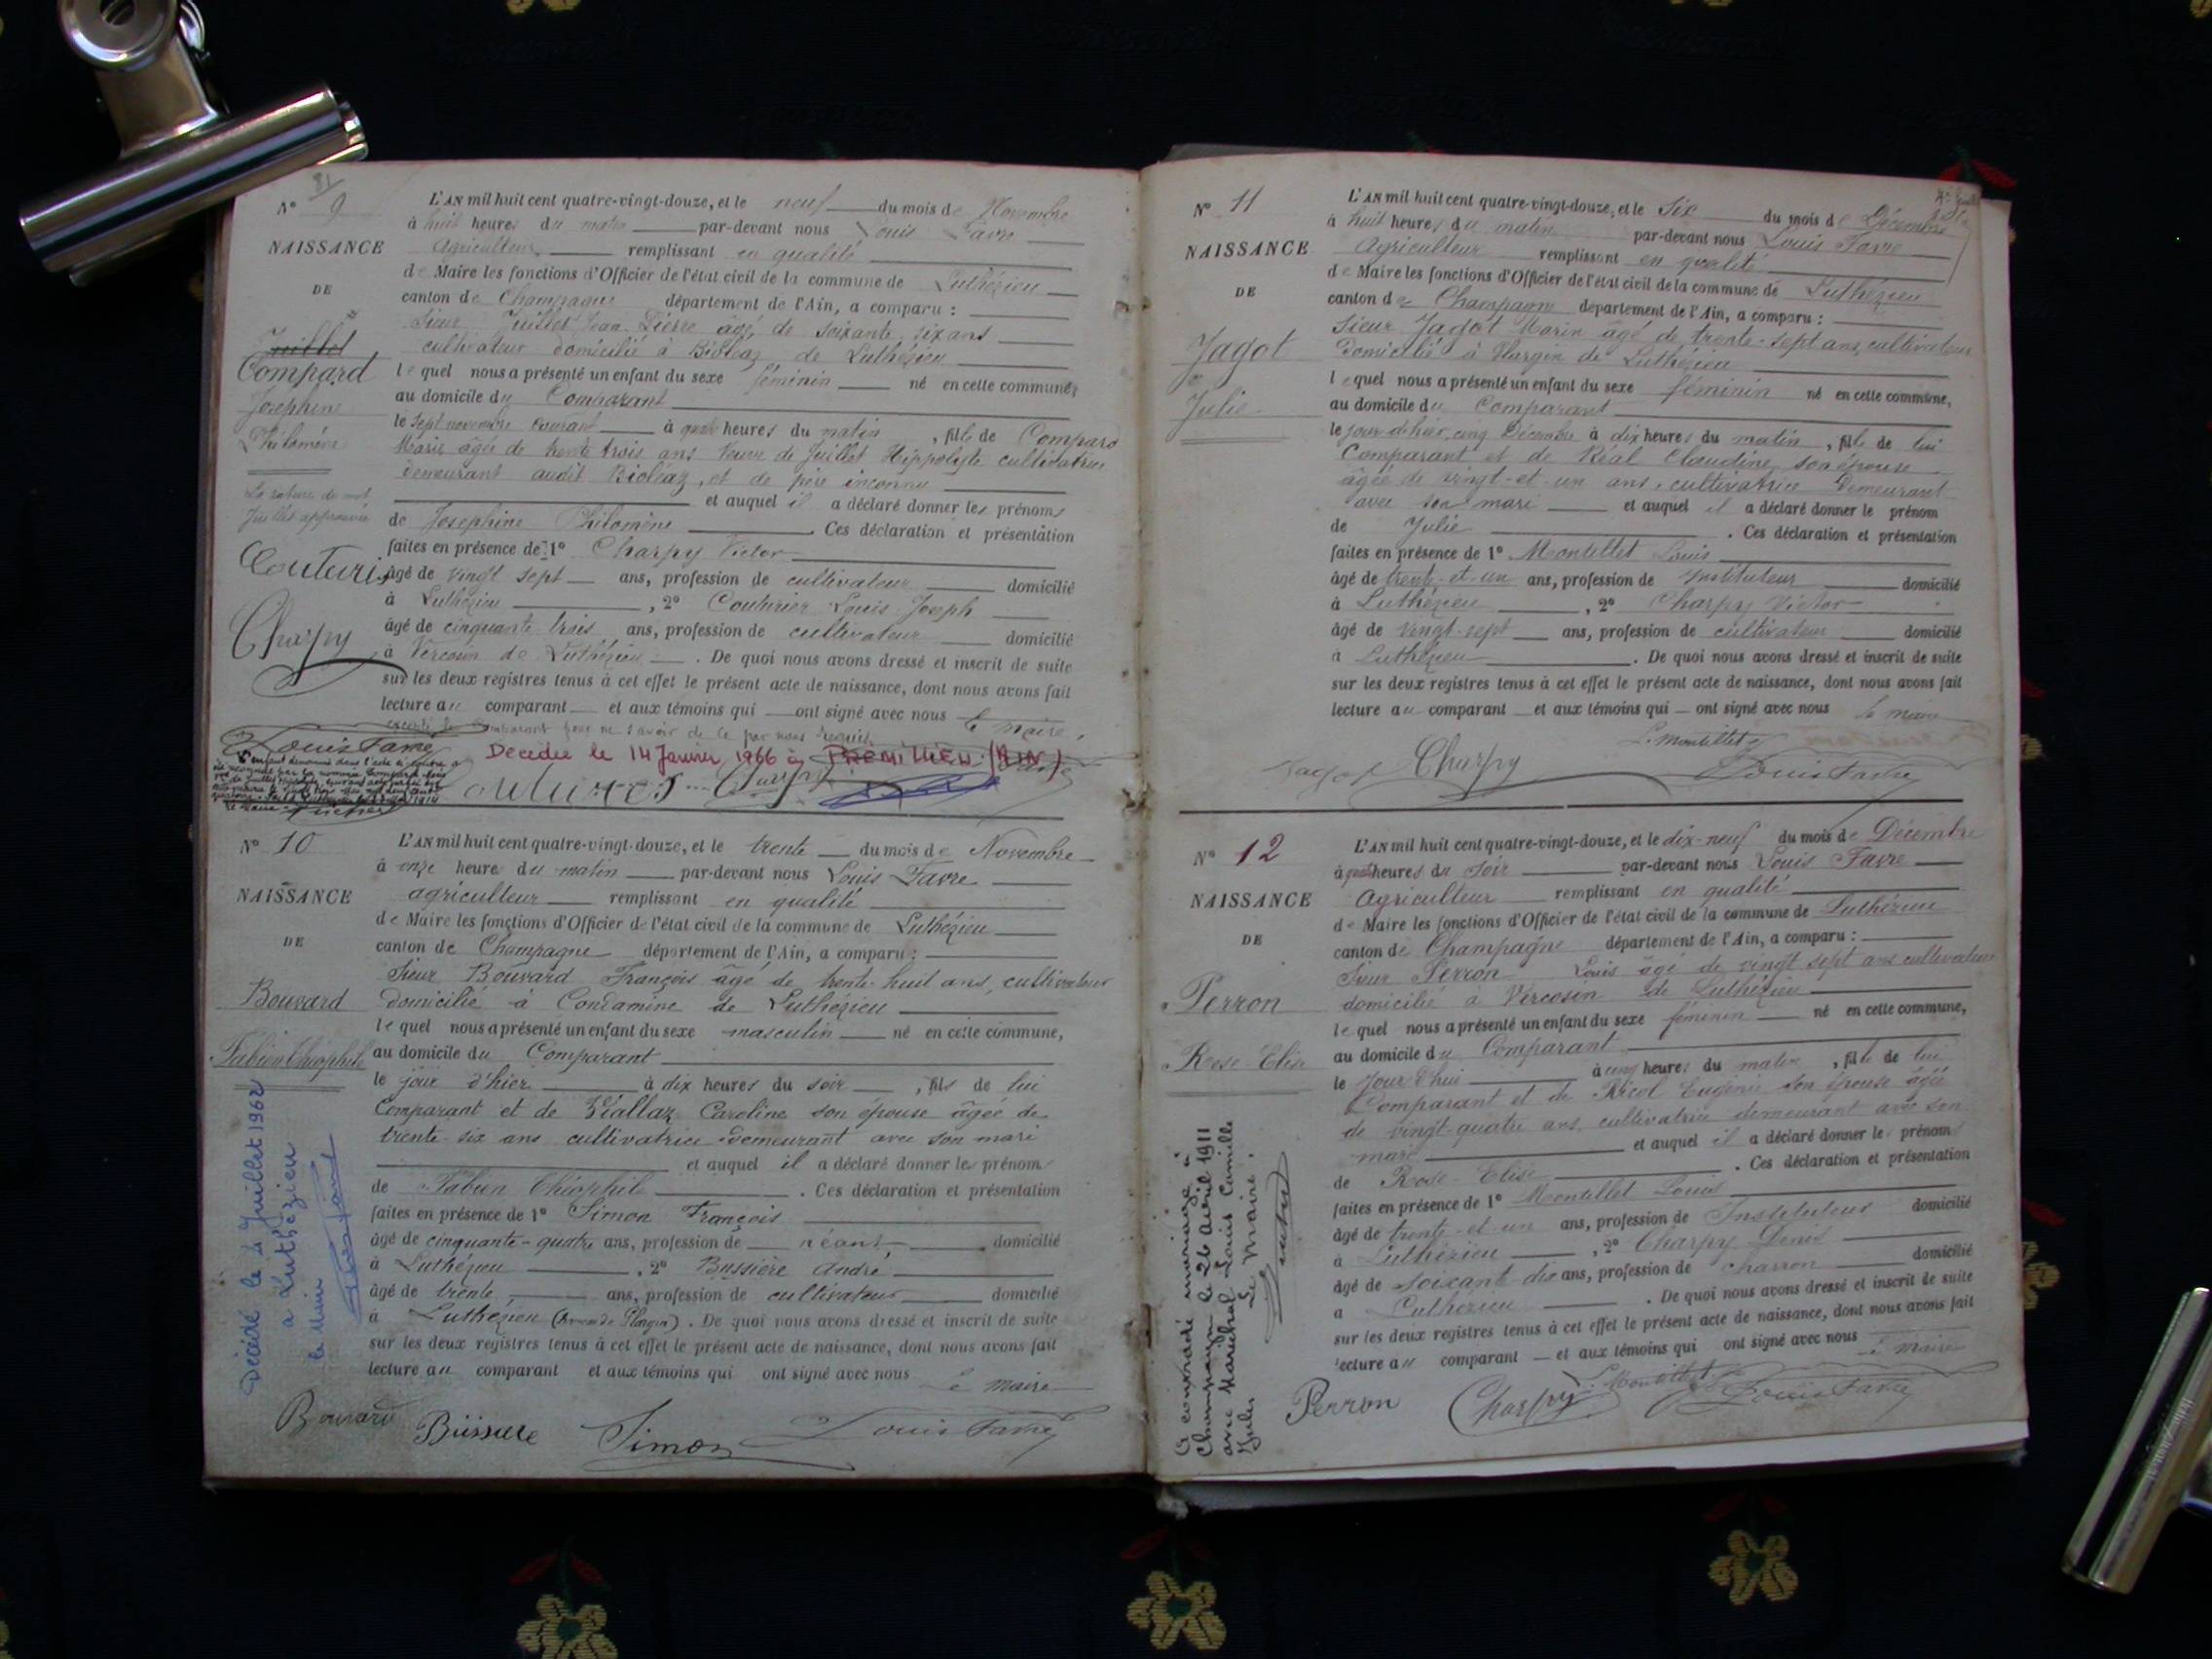 81
N° 9
NAISSANCE
DE
Juillet
Compard
Josephine
Philomène
La rature du mot
Juillet approuvée
Couturier
Charpy
L'AN mil huit cent quatre-vingt-douze, et le neuf du mois de Novembre
à huit heures du matin par-devant nous Louis Favre
Agriculteur remplissant en qualité
de Maire les fonctions d'Officier de l'état civil de la commune de Luthézieu
canton de Champagne département de l'Ain, a comparu :
Sieur Juillet Jean Pierre âgé de soixante six ans
cultivateur domicilié à Bioléaz de Luthézieu
lequel nous a présenté un enfant du sexe féminin né en cette commune,
au domicile du Comparant
le sept novembre courant à heures du matin, fille de Compard
Marie âgée de trente trois ans Veuve de Juillet Hippolyte cultivatrice
demeurant audit Bioléaz, et de père inconnu
et auquel il a déclaré donner les prénoms
de Josephine Philomène. Ces déclaration et présentation
faites en présence de 1° Charpy Victor
âgé de vingt sept ans, profession de cultivateur domicilié
à Luthézieu, 2° Couturier Louis Joseph
âgé de cinquante trois ans, profession de cultivateur domicilié
à Vercosin de Luthézieu. De quoi nous avons dressé et inscrit de suite
sur les deux registres tenus à cet effet le présent acte de naissance, dont nous avons fait
lecture au comparant et aux témoins qui ont signé avec nous le maire,
excepté le comparant pour ne savoir de ce par nous requis
Louis Favre
Décédée le 14 Janvier 1966 à PRÉMILLIEU (AIN)
Couturier Charpy
N° 10
NAISSANCE
DE
Bouvard
Fabien Théophile
L'AN mil huit cent quatre-vingt-douze, et le trente du mois de Novembre
à onze heure du matin par-devant nous Louis Favre
agriculteur remplissant en qualité
de Maire les fonctions d'Officier de l'état civil de la commune de Luthézieu
canton de Champagne département de l'Ain, a comparu :
Sieur Bouvard François âgé de trente huit ans, cultivateur
domicilié à Condamine de Luthézieu
lequel nous a présenté un enfant du sexe masculin né en cette commune,
au domicile du Comparant
le jour d'hier à dix heures du soir, fils de lui
Comparant et de Caroline son épouse âgée de
trente six ans cultivatrice demeurant avec son mari
et auquel il a déclaré donner les prénom
de Fabien Théophile. Ces déclaration et présentation
faites en présence de 1° Simon François
âgé de cinquante-quatre ans, profession de néant, domicilié
à Luthézieu, 2° Bussière André,
âgé de trente ans, profession de cultivateur domicilié
à Luthézieu (hameau de Hargin). De quoi nous avons dressé et inscrit de suite
sur les deux registres tenus à cet effet le présent acte de naissance, dont nous avons fait
lecture au comparant et aux témoins qui ont signé avec nous le maire
Décédé le 2 Juillet 1962
à Luthézieu
le Maire
Bouvard Büssiere Simon Louis Favre
N° 11
NAISSANCE
DE
Jagot
Julie
L'AN mil huit cent quatre-vingt-douze, et le Six du mois de Décembre
à huit heures du matin par-devant nous Louis Favre
Agriculteur remplissant en qualité
de Maire les fonctions d'Officier de l'état civil de la commune de Luthézieu
canton de Champagne département de l'Ain, a comparu :
Sieur Jagot Marin âgé de trente-sept ans, cultivateur
domicilié à Hargin de Luthézieu
lequel nous a présenté un enfant du sexe féminin né en cette commune,
au domicile du Comparant
le jour d'hier, cinq Décembre à dix heures du matin, fille de lui
Comparant et de Réal Claudine, son épouse
âgée de vingt-et-un ans, cultivatrice demeurant
avec son mari et auquel il a déclaré donner le prénom
de Julie. Ces déclaration et présentation
faites en présence de 1° Montillet Louis
âgé de trente-et-un ans, profession de Instituteur domicilié
à Luthézieu, 2° Charpy Victor
âgé de vingt-sept ans, profession de cultivateur domicilié
à Luthézieu. De quoi nous avons dressé et inscrit de suite
sur les deux registres tenus à cet effet le présent acte de naissance, dont nous avons fait
lecture au comparant et aux témoins qui ont signé avec nous le maire
L. Montillet
Jagot Charpy Louis Favre
N° 12
NAISSANCE
DE
Perron
Rose Elise
L'AN mil huit cent quatre-vingt-douze, et le dix-neuf du mois de Décembre
à heures du soir par-devant nous Louis Favre
Agriculteur remplissant en qualité
de Maire les fonctions d'Officier de l'état civil de la commune de Luthézieu
canton de Champagne département de l'Ain, a comparu :
Sieur Perron Louis âgé de vingt sept ans cultivateur
domicilié à Vercosin de Luthézieu
lequel nous a présenté un enfant du sexe féminin né en cette commune,
au domicile du Comparant
le jour d'hui à cinq heures du matin, fille de lui
Comparant et de Nicol Eugénie son épouse âgée
de vingt-quatre ans, cultivatrice demeurant avec son
mari et auquel il a déclaré donner le prénom
de Rose-Elise. Ces déclaration et présentation
faites en présence de 1° Montillet Louis
âgé de trente-et-un ans, profession de Instituteur domicilié
à Luthézieu, 2° Charpy Denis
âgé de soixante-dix ans, profession de charron domicilié
à Luthézieu. De quoi nous avons dressé et inscrit de suite
sur les deux registres tenus à cet effet le présent acte de naissance, dont nous avons fait
lecture au comparant et aux témoins qui ont signé avec nous le maire
A contracté mariage à
Champagne le 26 Avril 1911
avec Maréchal Louis Camille
Jules Le Maire,
Perron Charpy L. Montillet Louis Favre